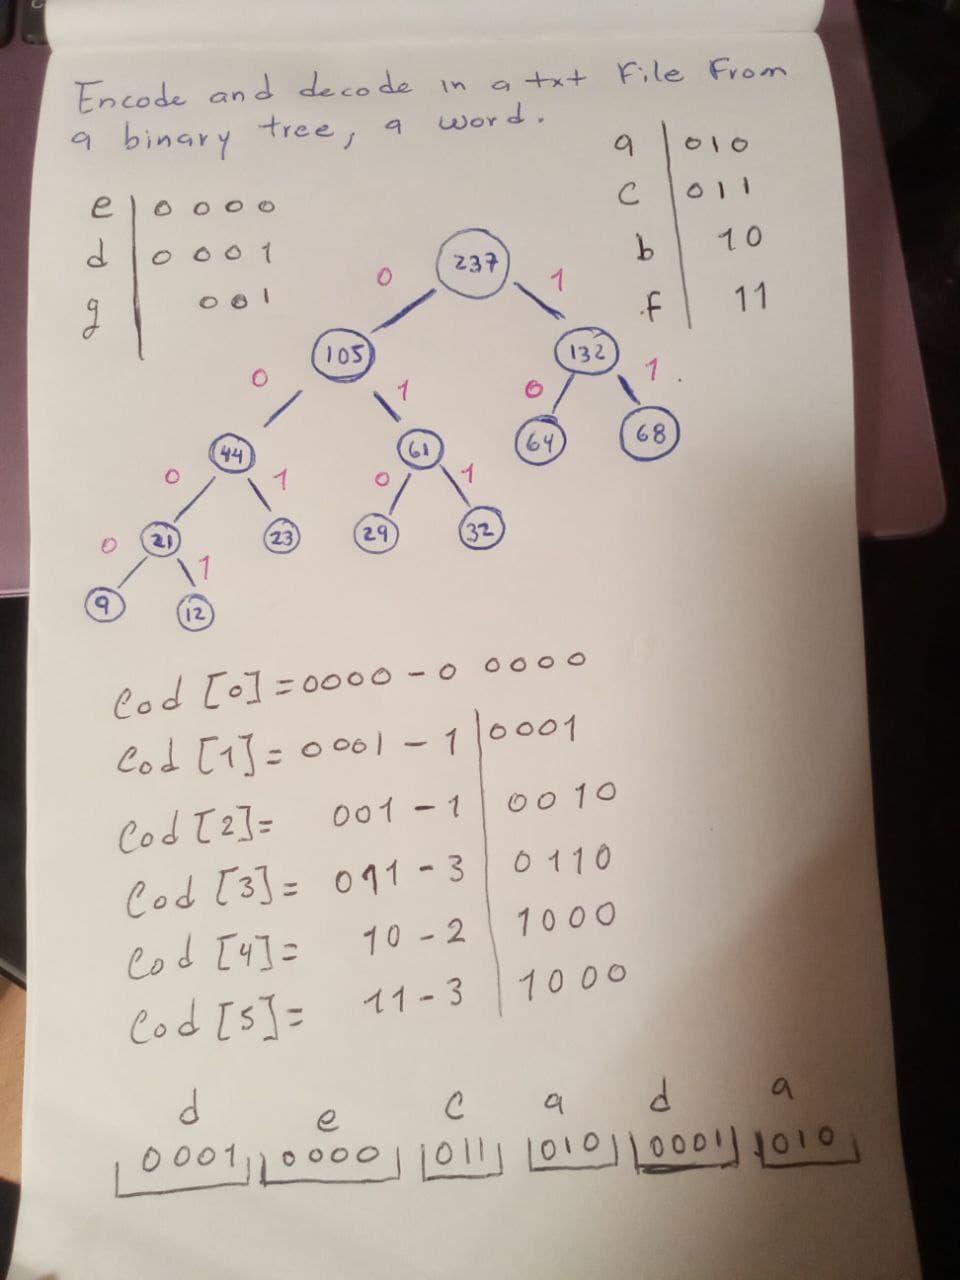 Encode and decode in a txt File From
a binary tree, a word.
e | 0 0 0 0
d | 0 0 0 1
g | 0 0 1
a | 0 1 0
c | 0 1 1
b | 10
f | 11
237
0 1
105 132
0 1 0 1
44 61 64 68
0 1 0 1
21 23 29 32
0 1
9 12
Cod [0] = 0000 - 0 0000
Cod [1] = 0001 - 1 | 0001
Cod [2] = 001 - 1 | 0010
Cod [3] = 011 - 3 | 0110
Cod [4] = 10 - 2 | 1000
Cod [5] = 11 - 3 | 1000
d e c a d a
0001 0000 011 010 0001 010